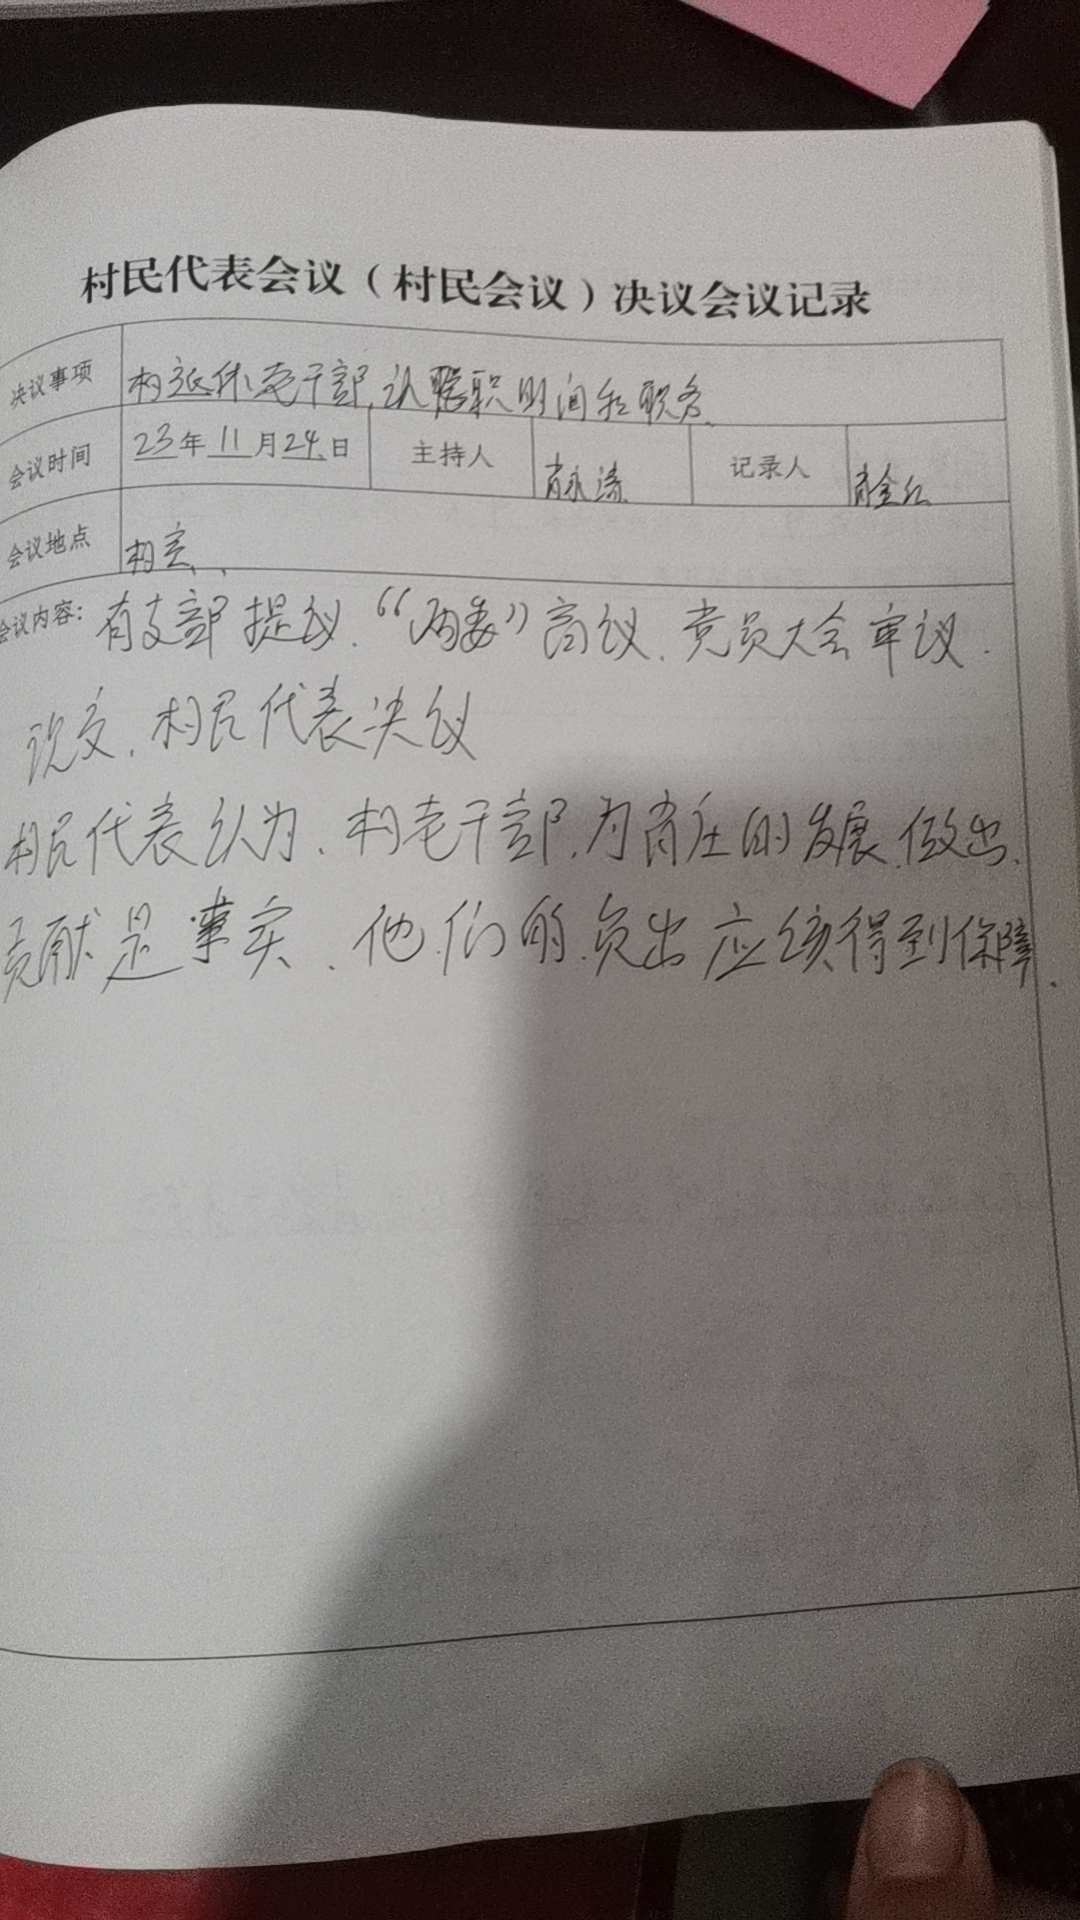 村民代表会议（村民会议）决议会议记录
决议事项 村退休老干部、认职时间和职务、
会议时间 23年11月24日 主持人 肖永涛 记录人 肖金红
会议地点 村室、
会议内容：有支部提议、“两委”商议、党员大会审议、
说交、村民代表决议
村民代表认为、村老干部、为肖庄的发展、做出、
贡献是事实、他们的负出应该得到保障、